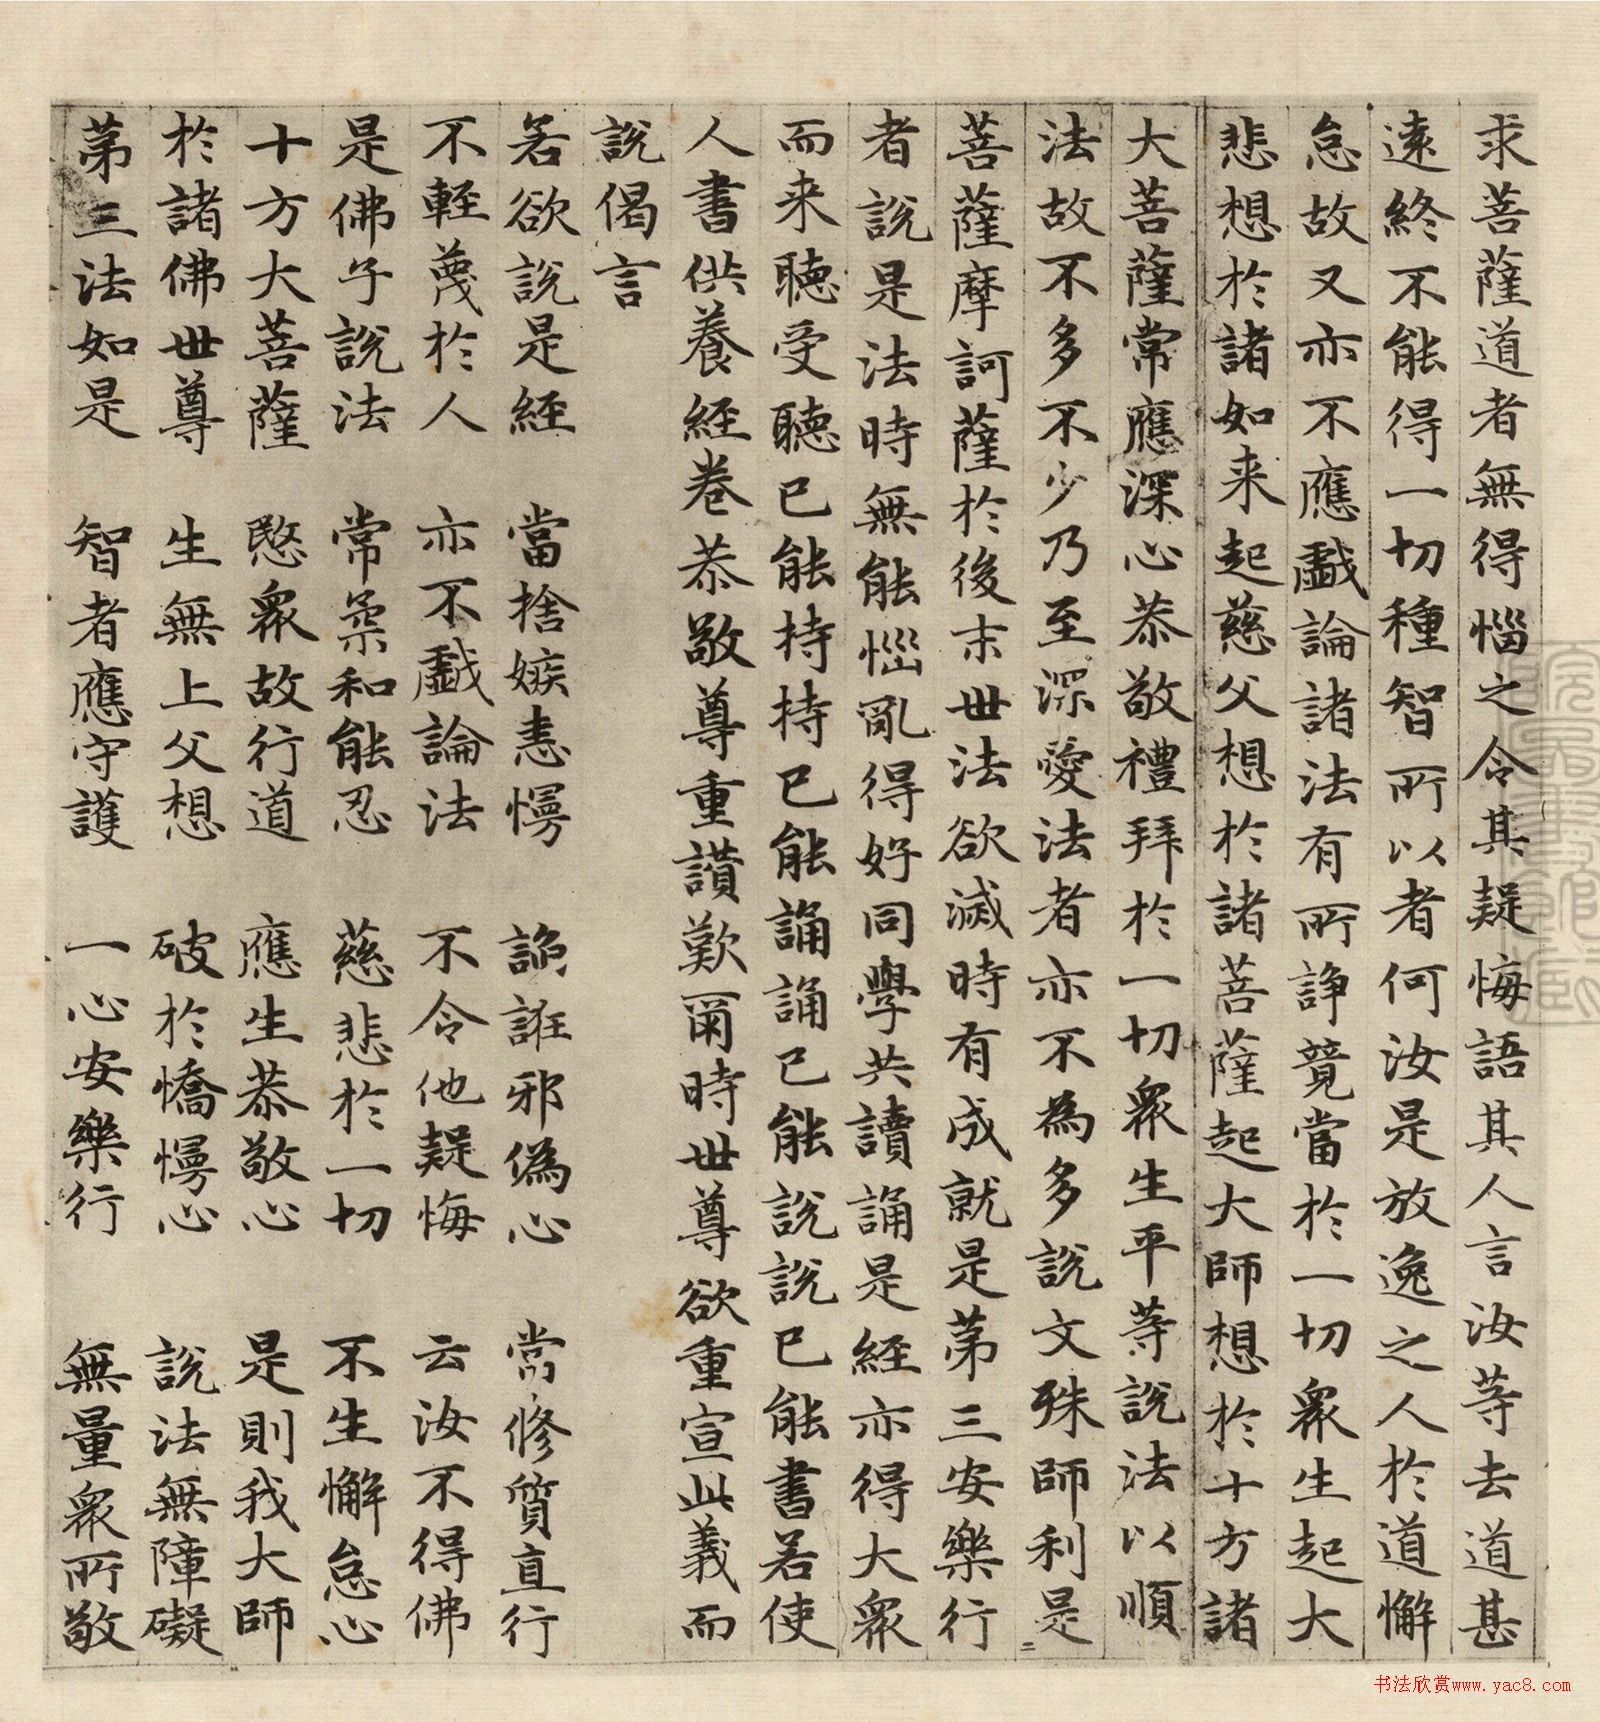 求菩薩道者無得惱之令其疑悔語其人言汝等去道甚
遠終不能得一切種智所以者何汝是放逸之人於道懈
怠故又亦不應戲論諸法有所諍競當於一切眾生起大
悲想於諸如来起慈父想於諸菩薩起大師想於十方諸
大菩薩常應深心恭敬禮拜於一切眾生平等說法以順
法故不多不少乃至深愛法者亦不為多說文殊師利是
菩薩摩訶薩於後末世法欲滅時有成就是第三安樂行
者說是法時無能惱亂得好同學共讀誦是經亦得大眾
而来聽受聽已能持持已能誦誦已能說說已能書若使
人書供養經卷恭敬尊重讚歎爾時世尊欲重宣此義而
說偈言
若欲說是經 當捨嫉恚慢 諂誑邪偽心 常修質直行
不輕蔑於人 亦不戲論法 不令他疑悔 云汝不得佛
是佛子說法 常柔和能忍 慈悲於一切 不生懈怠心
十方大菩薩 愍眾故行道 應生恭敬心 是則我大師
於諸佛世尊 生無上父想 破於憍慢心 說法無障礙
第三法如是 智者應守護 一心安樂行 無量眾所敬
书法欣赏www.yac8.com